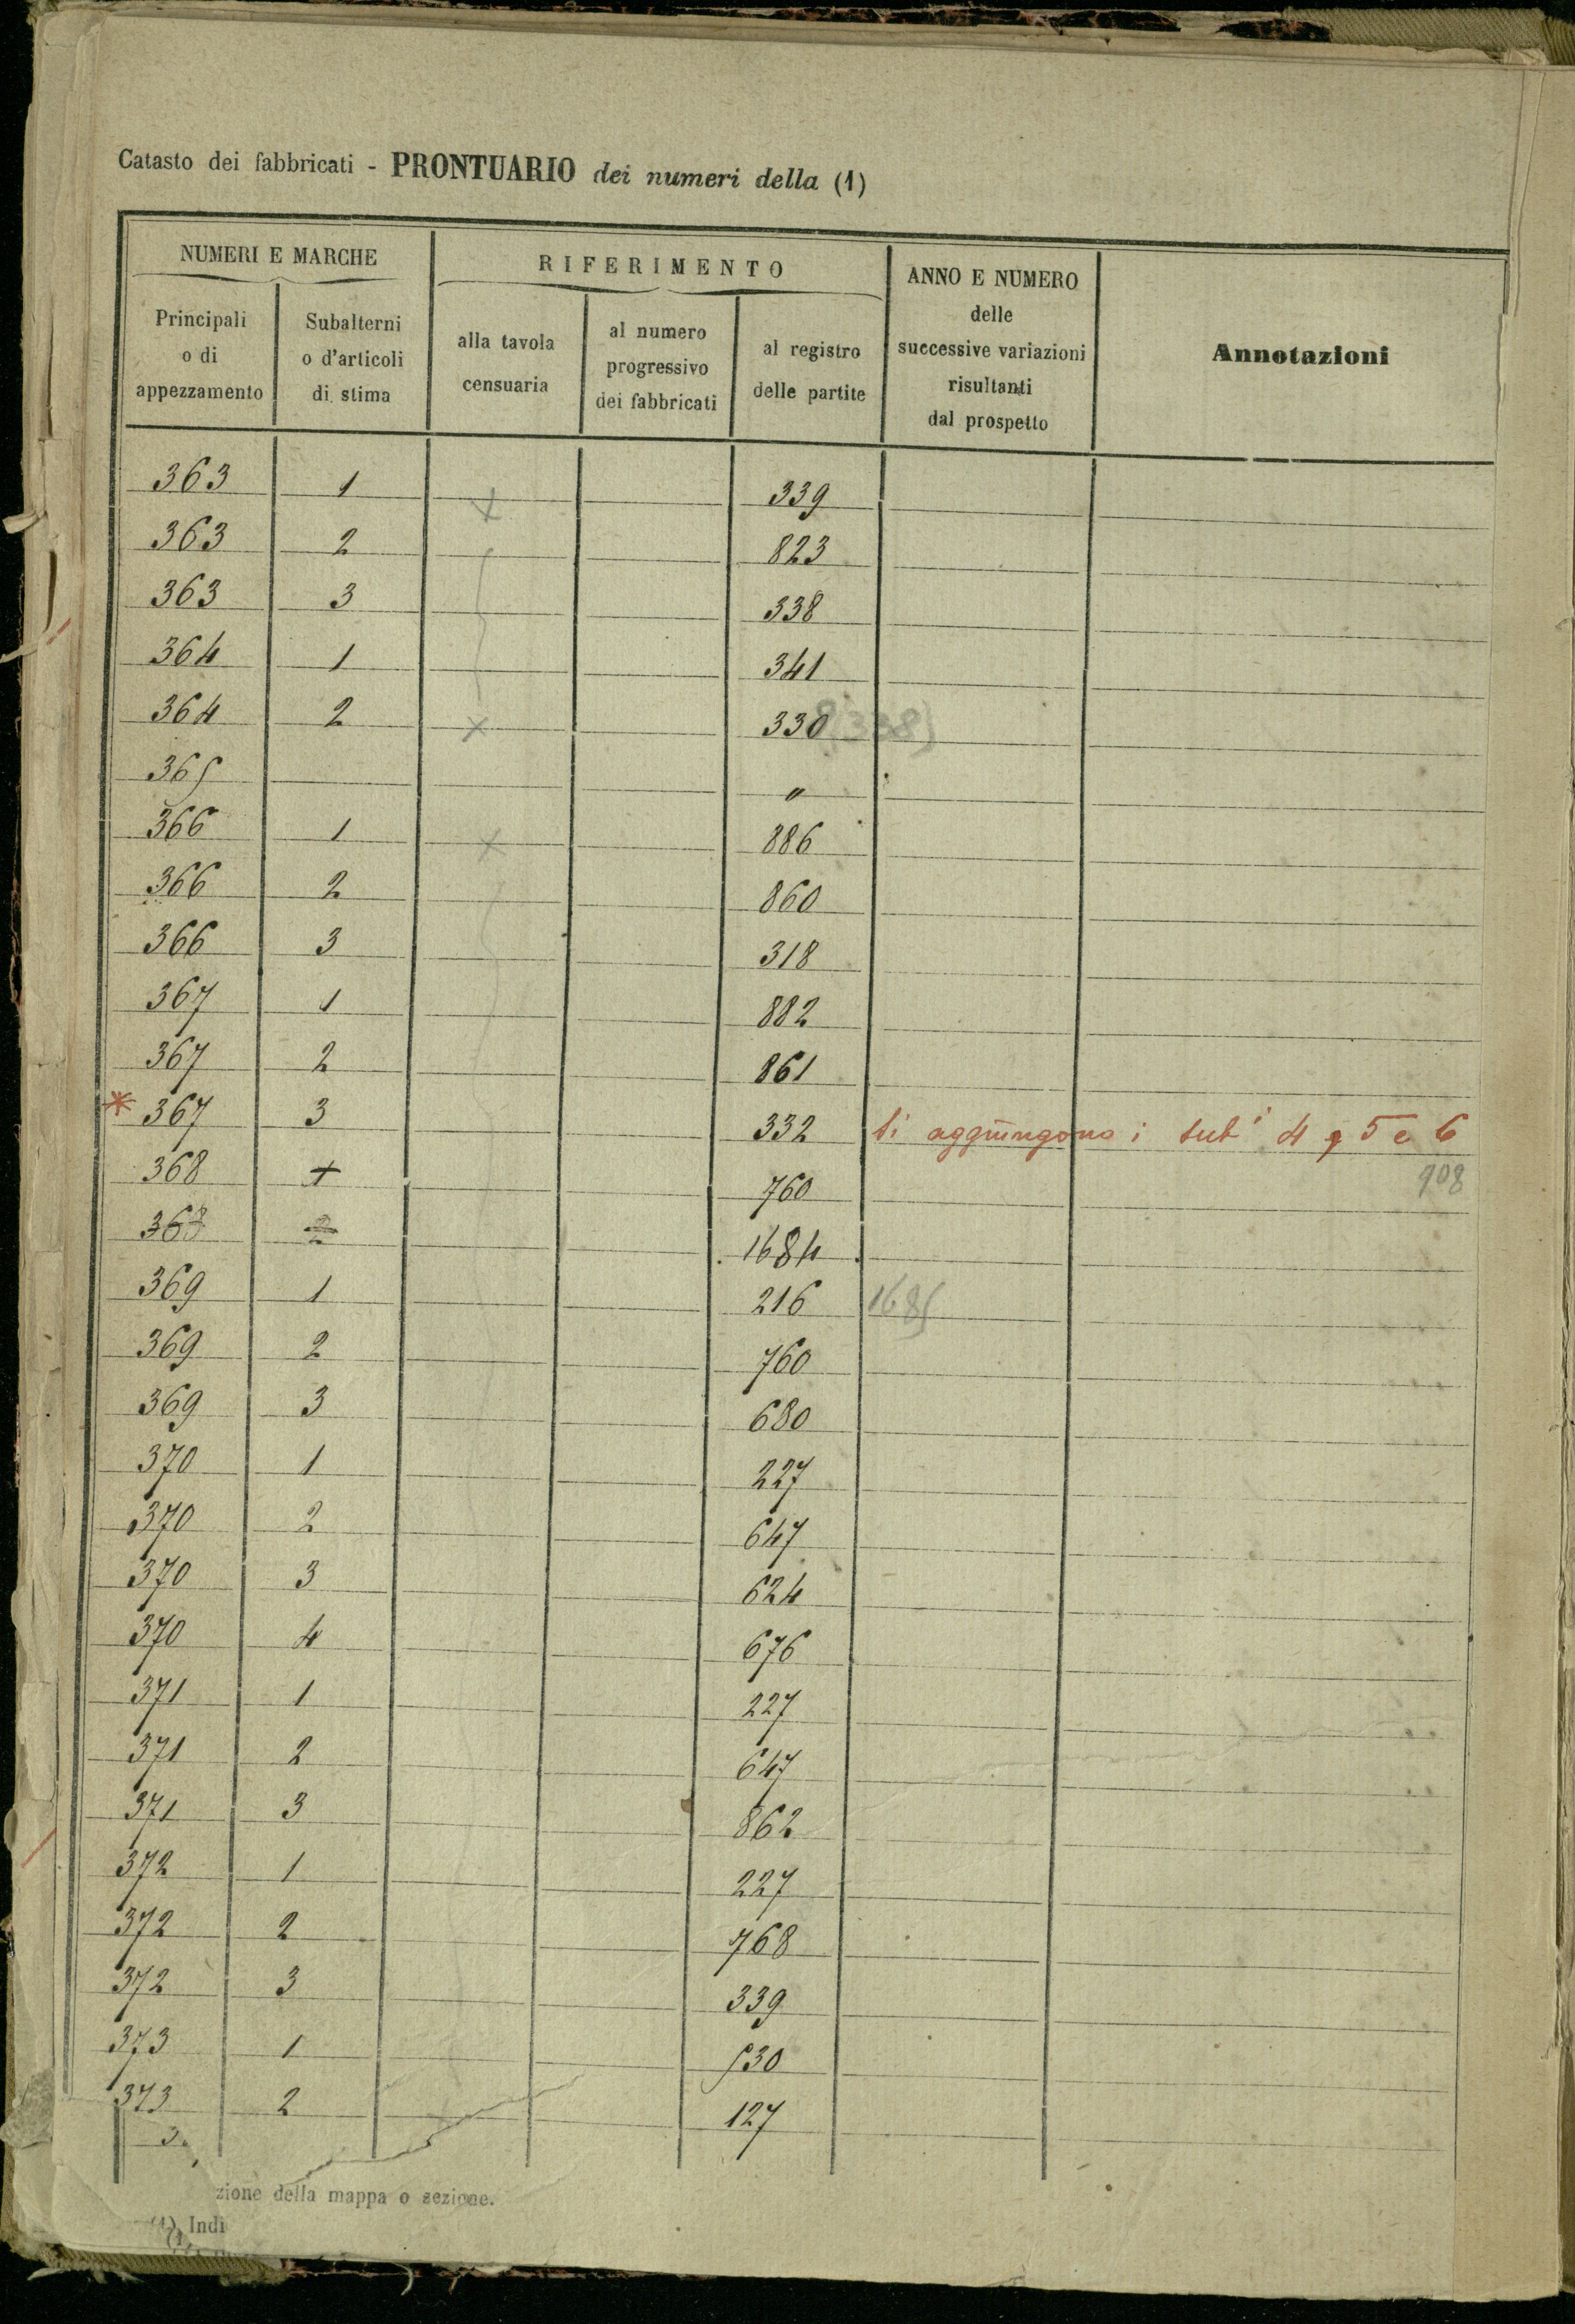 Catasto dei fabbricati - PRONTUARIO dei numeri della (1)
NUMERI E MARCHE
RIFERIMENTO
ANNO E NUMERO
delle
successive variazioni
risultanti
dal prospetto
Annotazioni
Principali
o di
appezzamento
Subalterni
o d'articoli
di stima
alla tavola
censuaria
al numero
progressivo
dei fabbricati
al registro
delle partite
363 1 339
363 2 823
363 3 338
364 1 341
364 2 330 (338)
365 "
366 1 886
366 2 860
366 3 318
367 1 882
367 2 861
* 367 3 332 si aggiungono i sub i 4, 5 e 6
368 1 760 908
368 2 1684
369 1 216 1685
369 2 760
369 3 680
370 1 227
370 2 647
370 3 624
370 4 676
371 1 227
371 2 647
371 3 862
372 1 227
372 2 768
372 3 339
373 1 530
373 2 127
3
zione della mappa o sezione.
(1) Indi